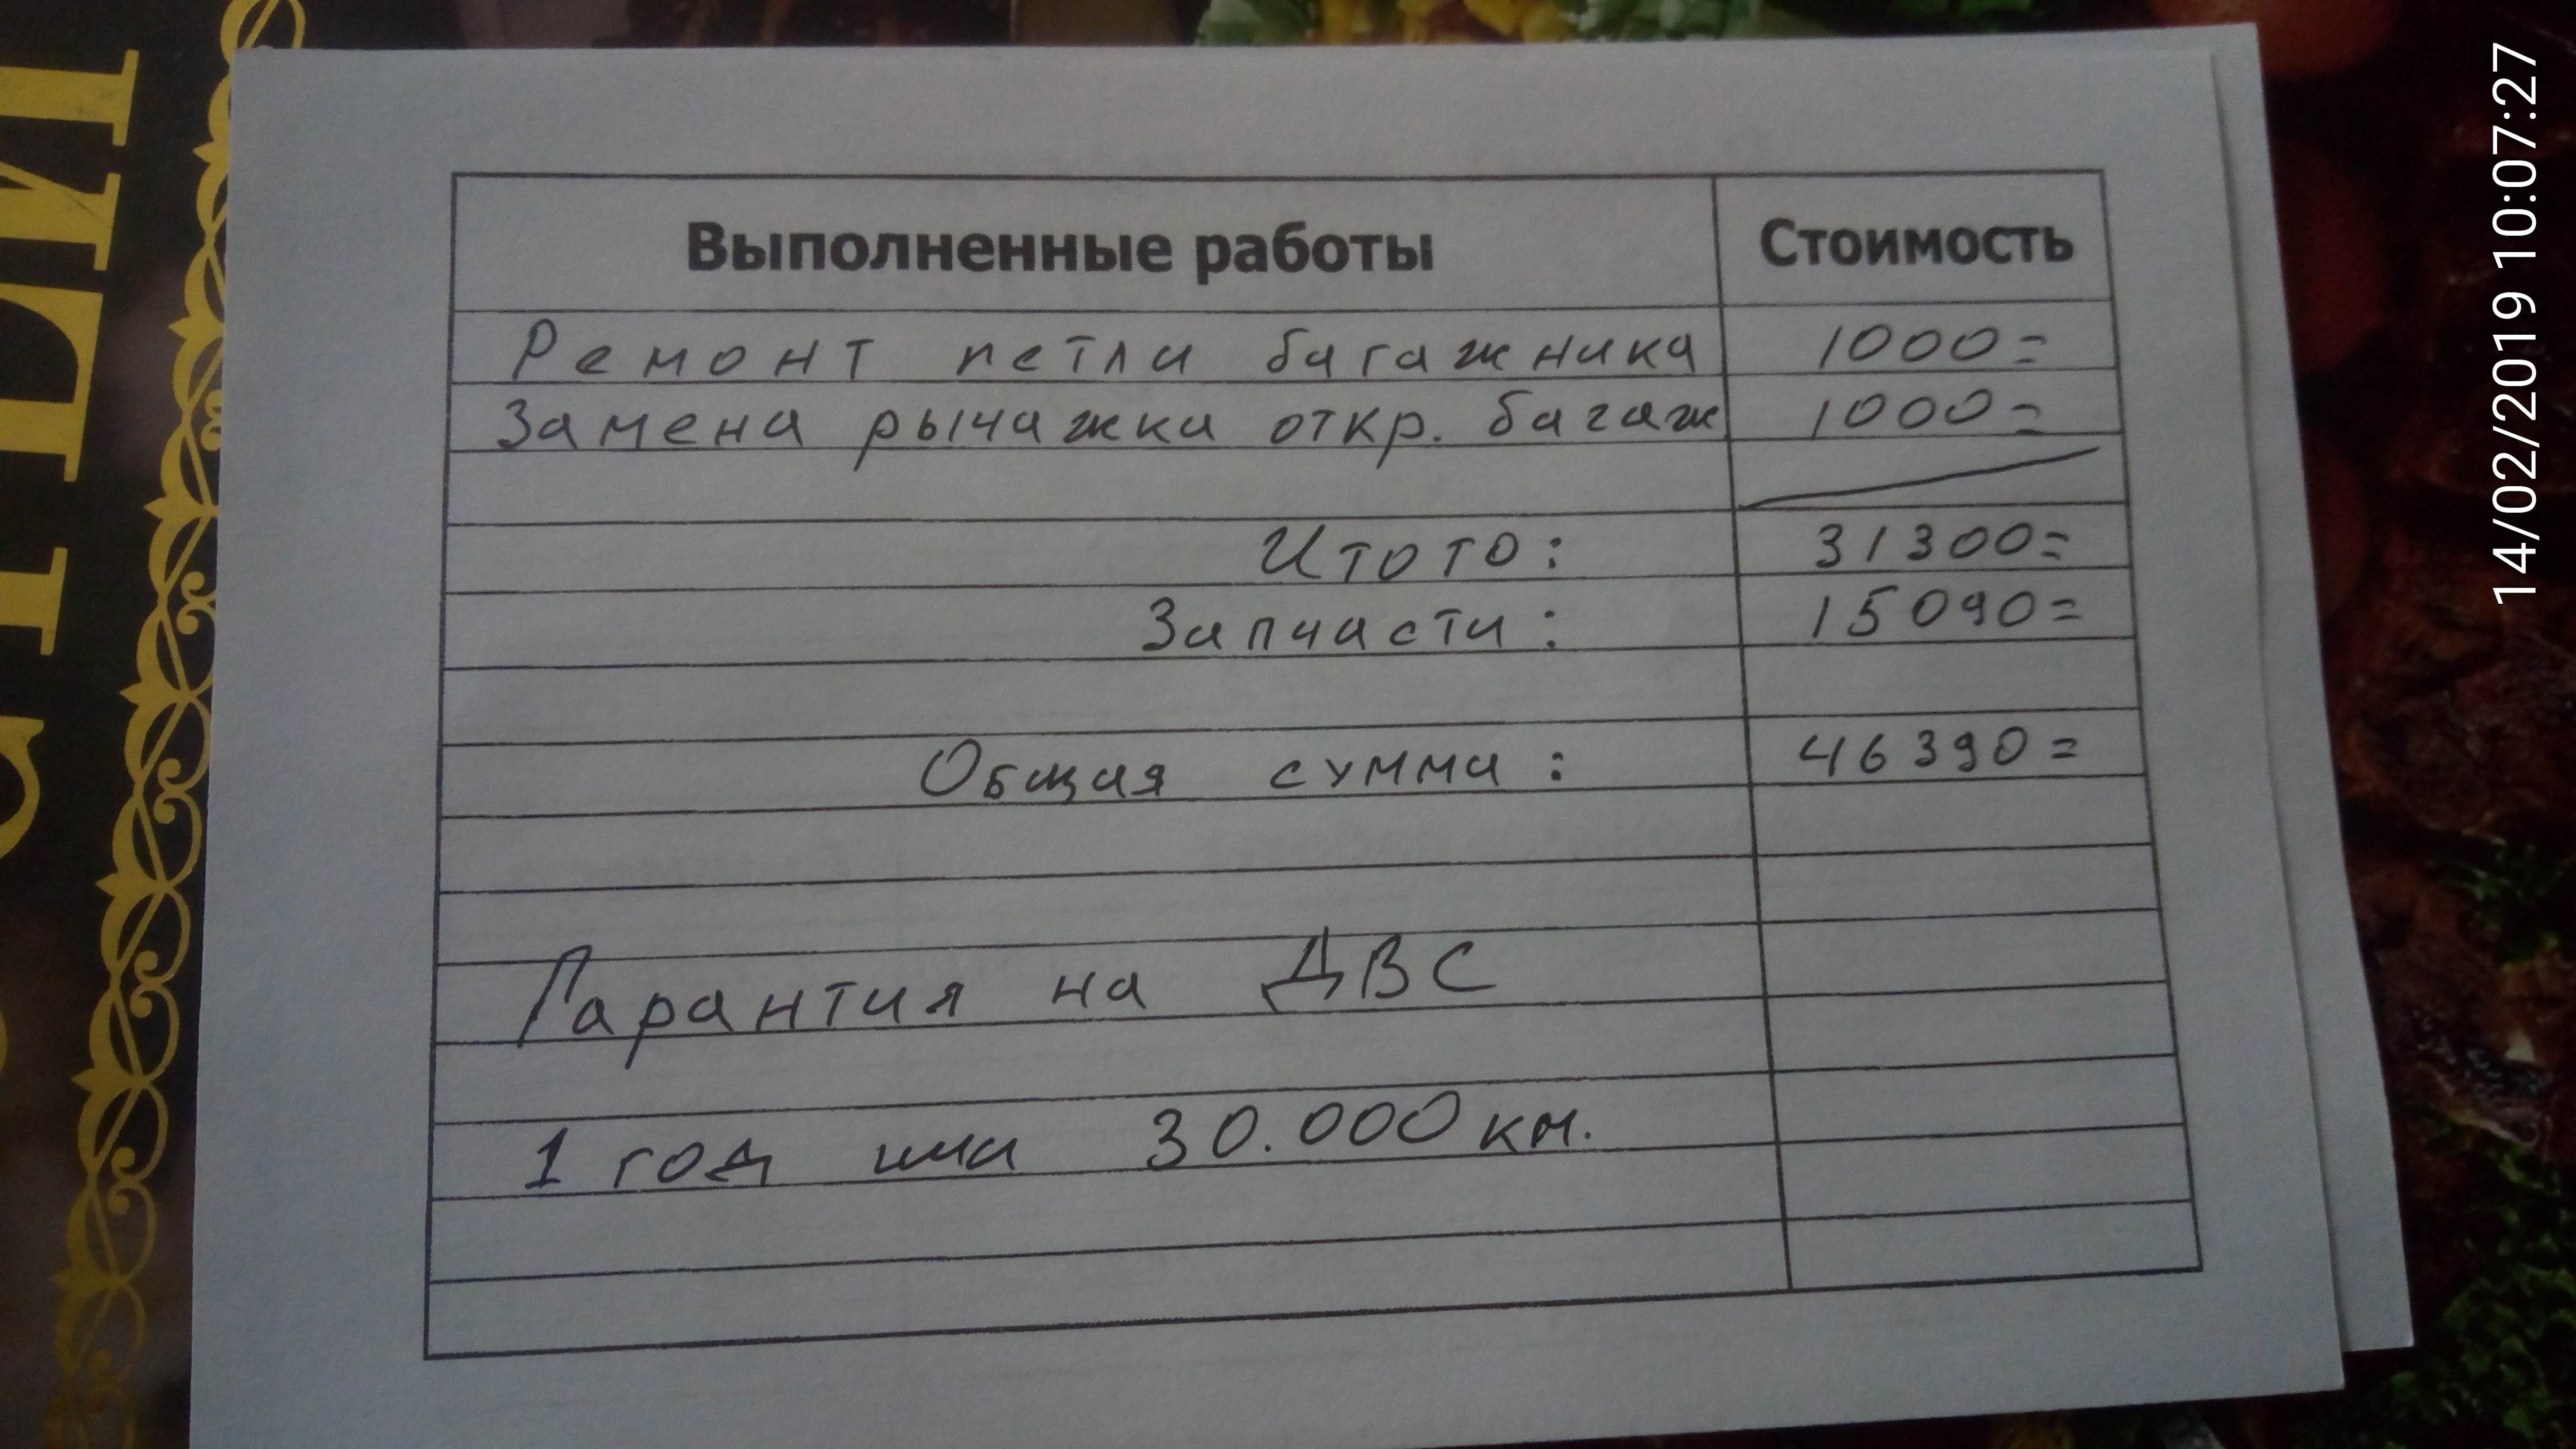 Выполненные работы Стоимость
Ремонт петли багажника 1000=
Замена рычажка откр. багаж 1000=
Итого: 31300=
Запчасти: 15090=
Общая сумма: 46390=
Гарантия на ДВС
1 год или 30.000 км.
14/02/2019 10:07:27